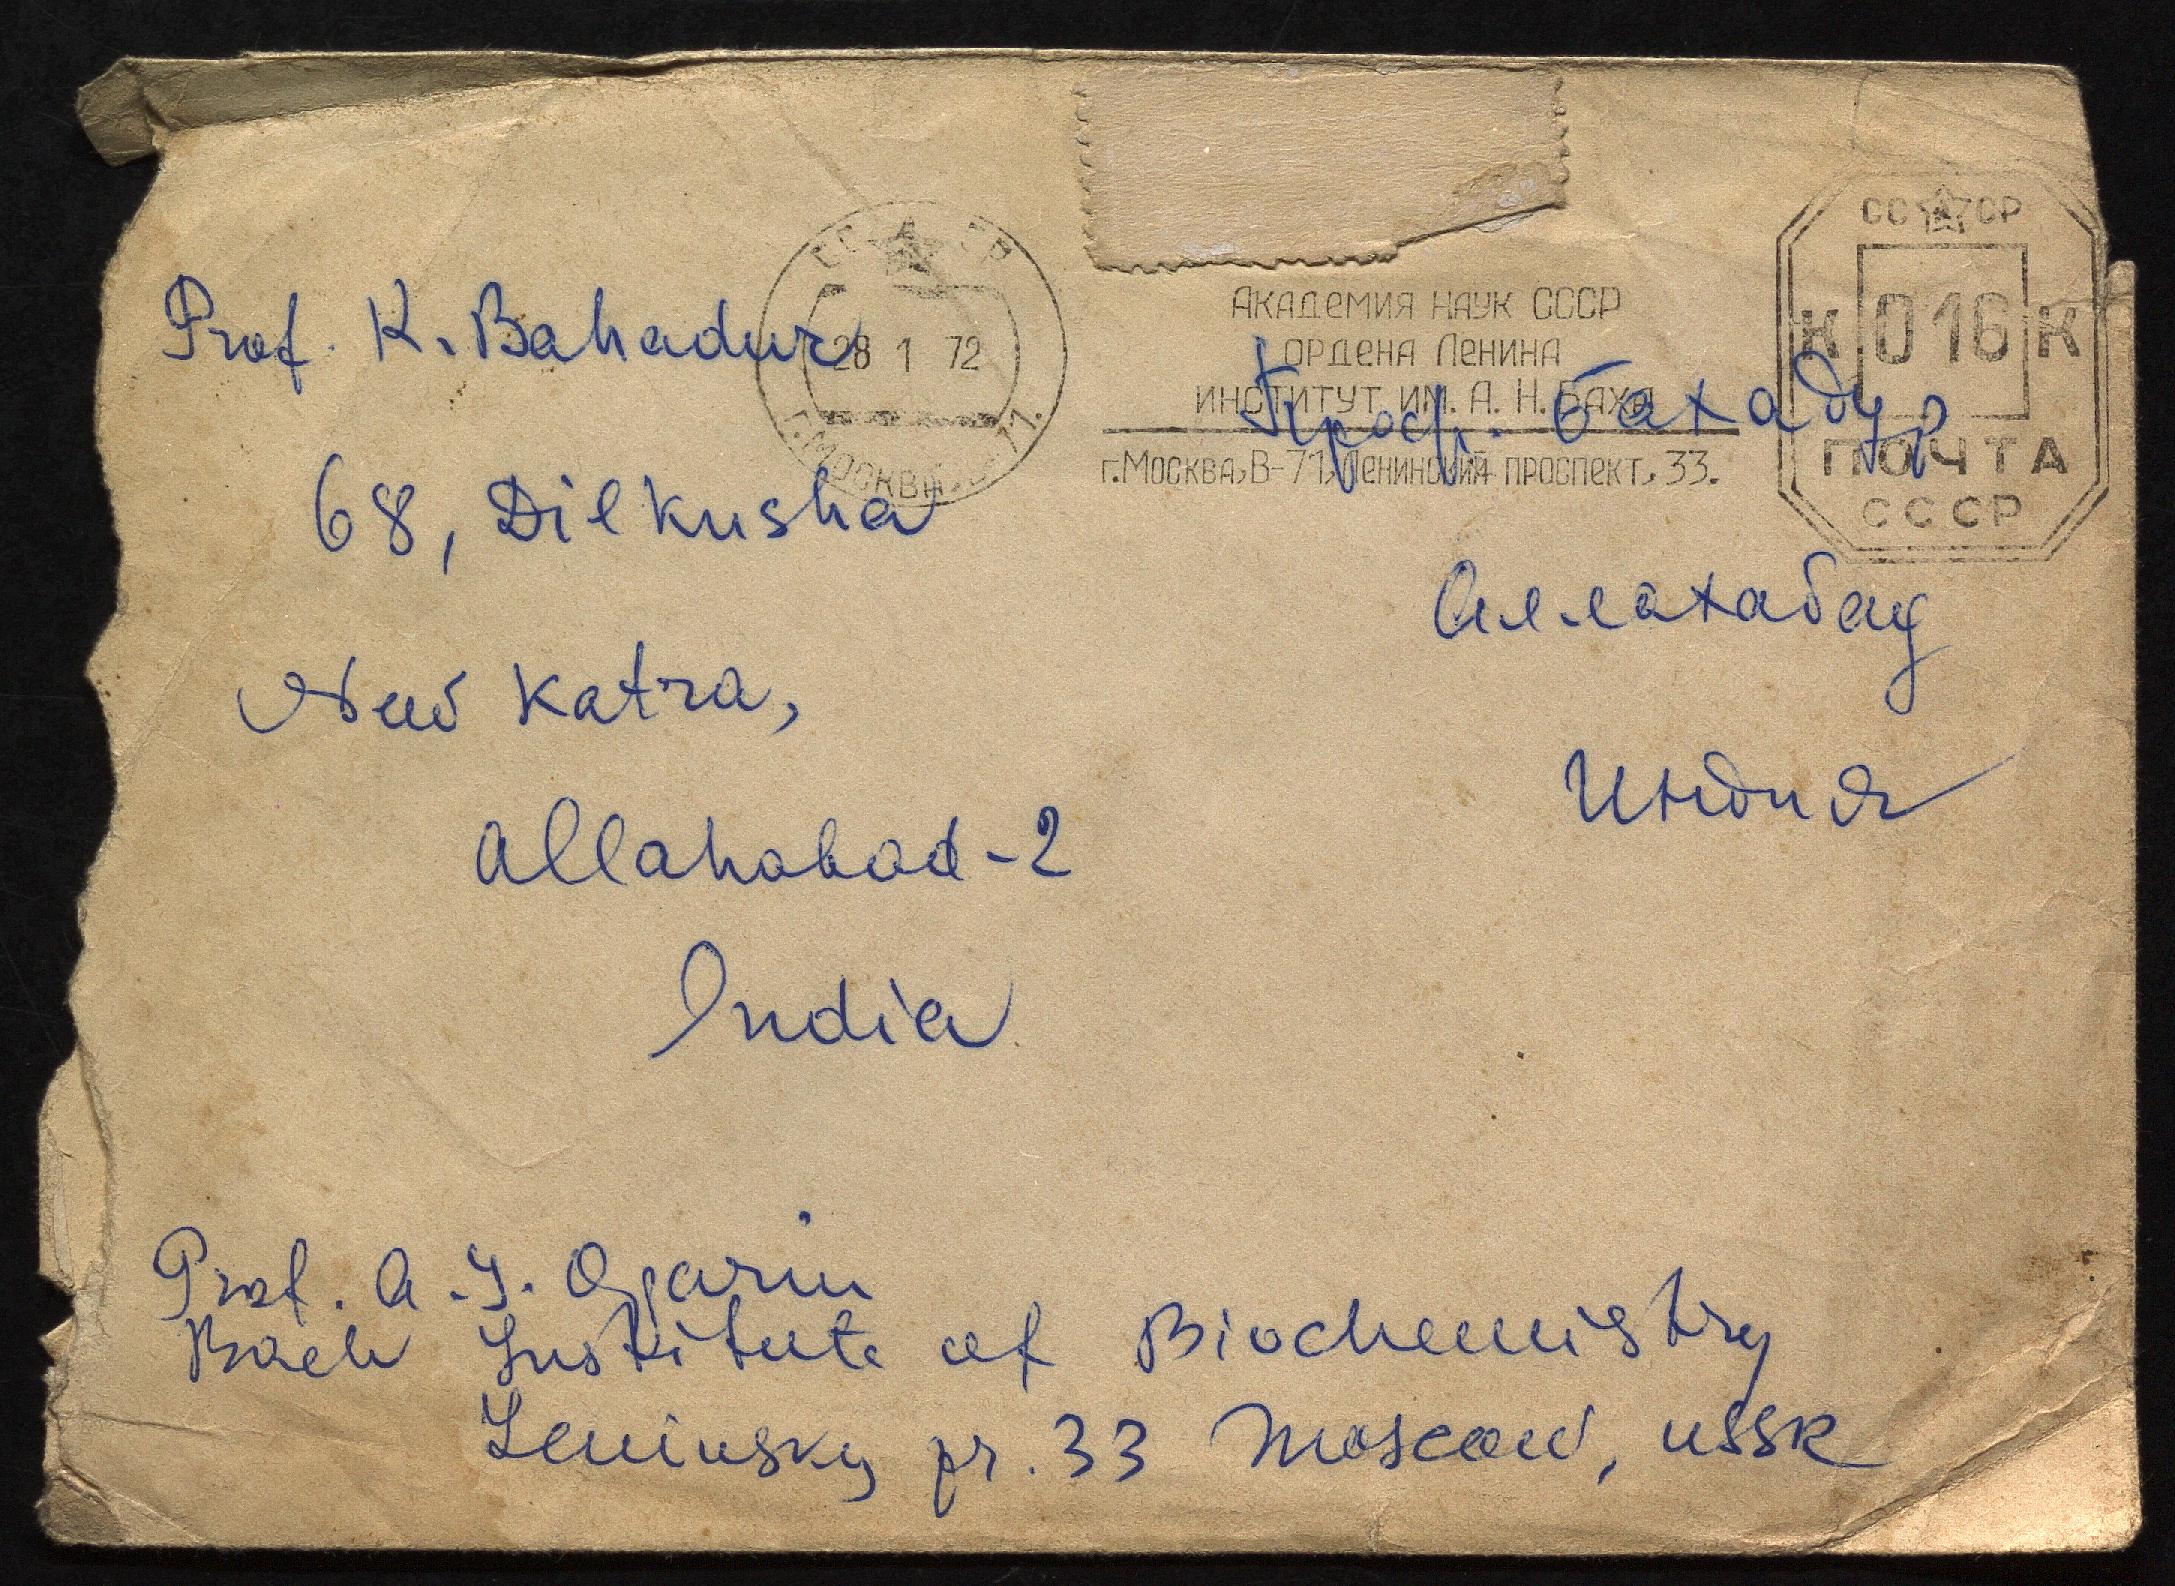 СССР
28 1 72
г. МОСКВА В-71.
АКАДЕМИЯ НАУК СССР
ОРДЕНА ЛЕНИНА
ИНСТИТУТ ИМ. А. Н. БАХА
г. Москва, В-71, Ленинский проспект, 33.
СССР
К 016 К
ПОЧТА
СССР
Prof. K. Bahadur
68, Dilkusha
New Katra,
Allahabad-2
India
Проф. Бахадур
Аллахабад
Индия
Prof. A. I. Oparin
Bach Institute of Biochemistry
Leninsky pr. 33 Moscow, USSR